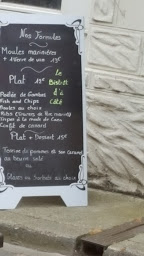 Nos Formules
Moules marinières
+ 1 Verre de vin 13€
Plat 12€
Le
Bistrot
d'à
Côté
Poêlée de Gambas
Fish and Chips
Moules au choix
Tripes à la mode de Caen
Confit de canard
Plat + Dessert 15€
Terrine de pommes et son Caramel
au beurre salé
ou
Glaces ou Sorbets au choix